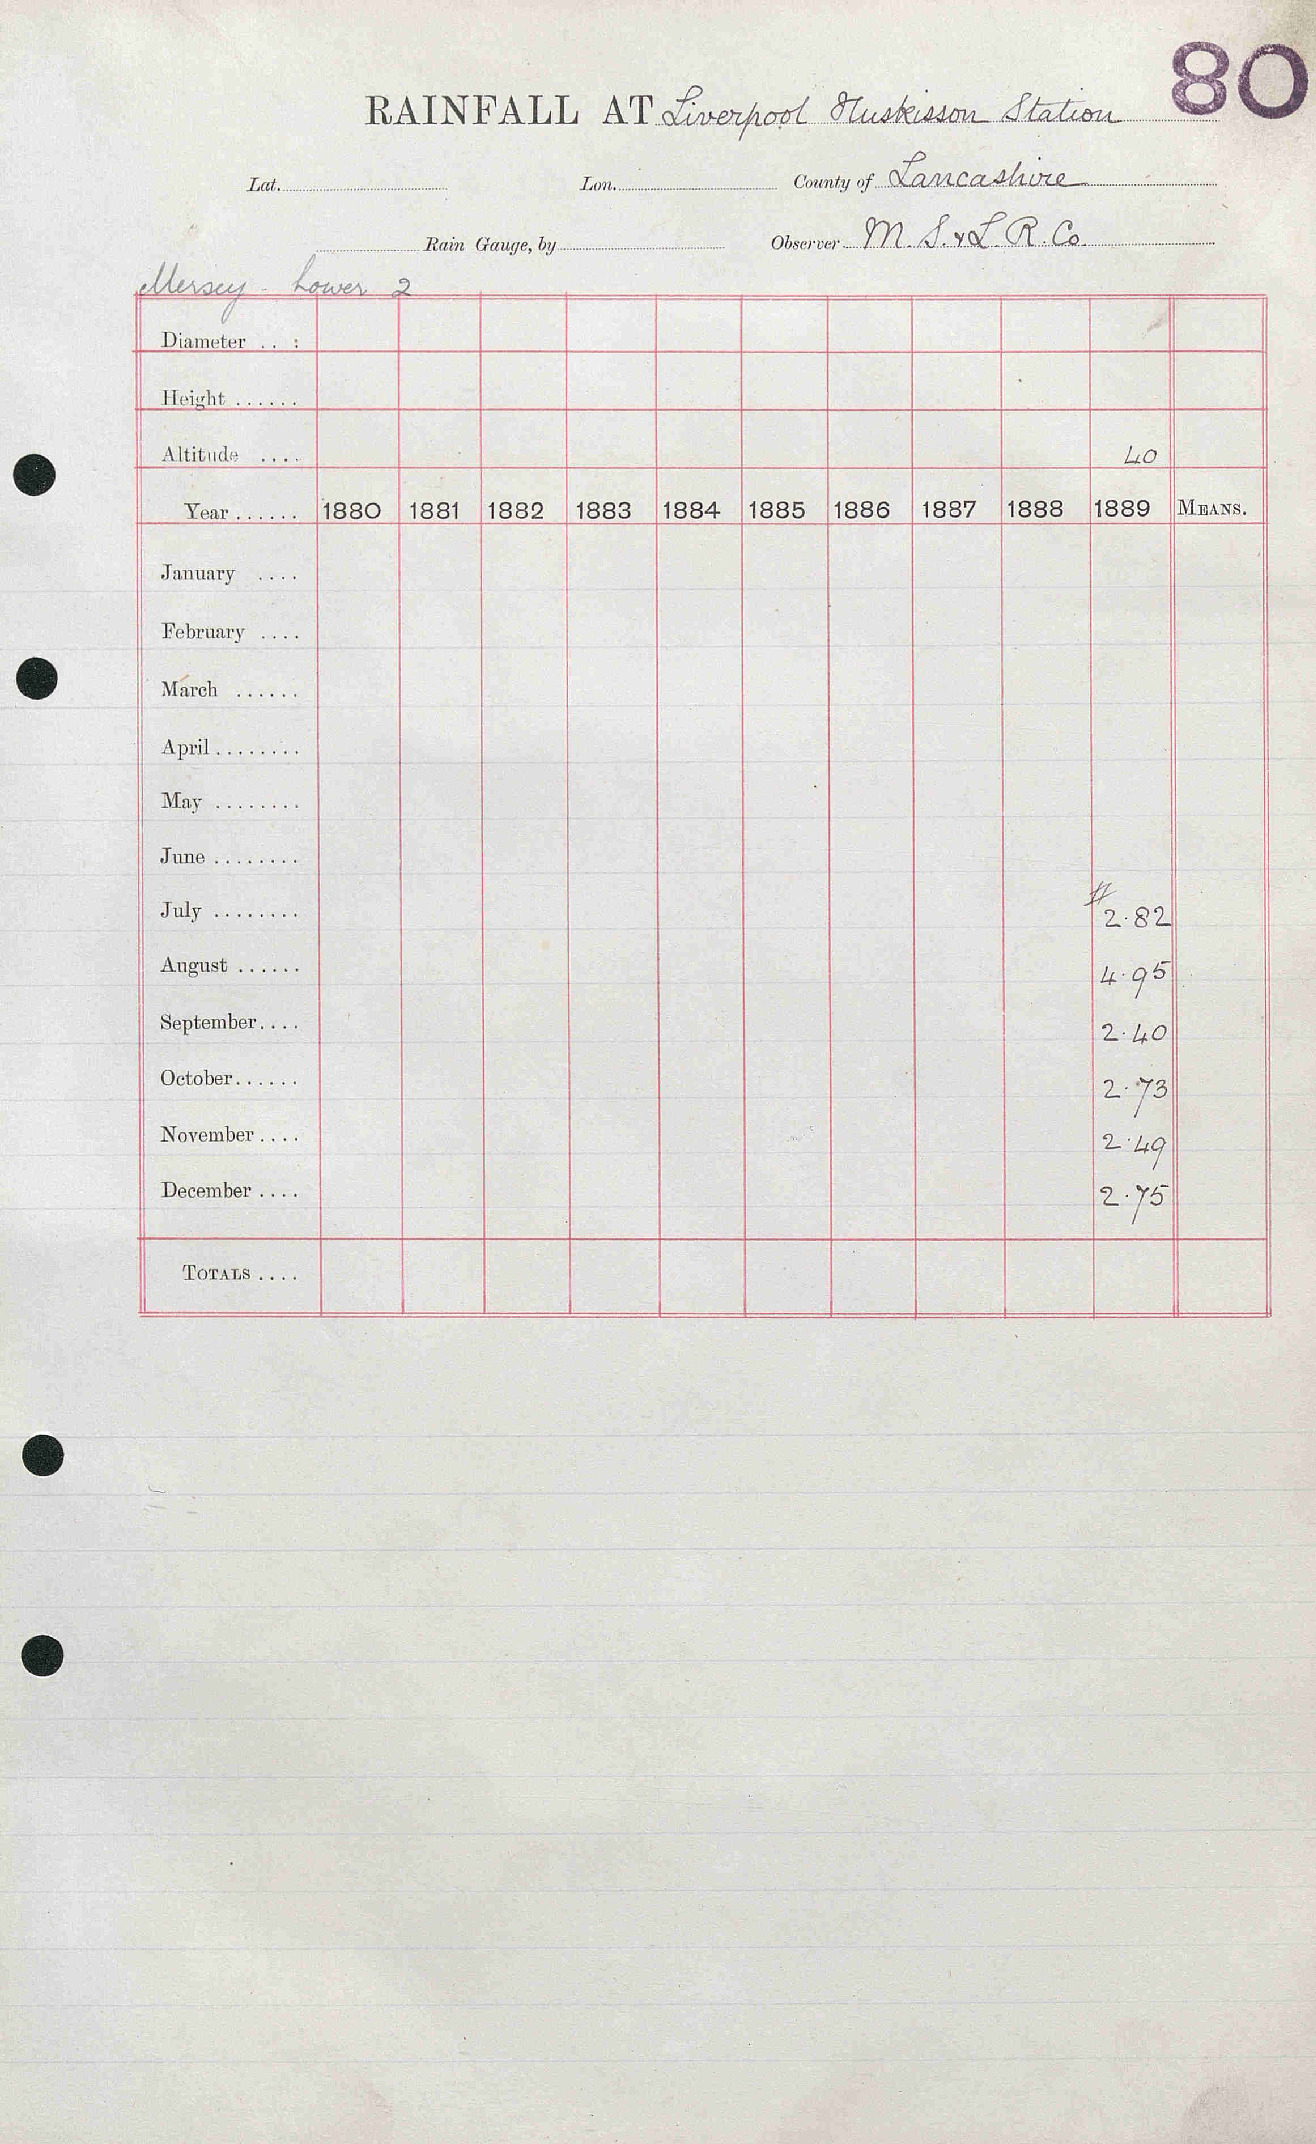 80
RAINFALL AT Liverpool Huskisson Station
Lat. Lon. County of Lancashire
Rain Gauge, by Observer M. S. & L R. Co.
Mersey - Lower 2
Diameter .. :
Height ......
Altitude .... 40
Year ...... 1880 1881 1882 1883 1884 1885 1886 1887 1888 1889 MEANS.
January ....
February ....
March ......
April ........
May ........
June ........
July ........ # 2.82
August ...... 4.95
September.... 2.40
October...... 2.73
November .... 2.49
December .... 2.75
TOTALS ....